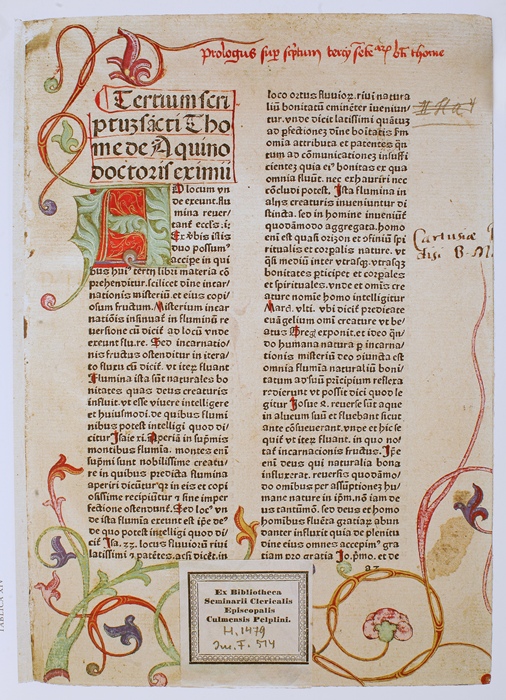 Prologus sup sc̄ptum tercij Sn̄tēar̄ bt̄i thome
Tertium scri
ptuȝ sācti Tho
me de Aquino
doctoris eximii
AD locum vn
de exeunt flu
mina reuer/
tant̄ eccls. i.
Ex v̄bis istis
duo possum᷒
accipe in qui
bus hui᷒ tertij libri materia cō
prehenditur. scilicet diīne incar/
nationis misteriū et eius copi/
osum fructum. Misterium incar
natiōis insinuat̄ in fluminū re
uersione cū dicit̄ ad locū vn̄de
exeunt flu. re. Sed incarnatio/
nis fructus ostenditur in itera/
to fluxu cū dicit̄. vt iteȝ fluant
Flumina ista sūt naturales bo
nitates quas deus creaturis
influit vt esse viuere intelligere
et huiusmōi. de quibus flumi
nibus potest intelligi quod di
citur Isaie xi. Aperiā in sup̄mis
montibus flumīa. montes enī
sup̄mi sunt nobilissime creatu/
re in quibus predicta flumina
aperiri dicūtur qꝛ in eis et copi
osissime recipiūtur ⁊ sine imper
fectione ostendunt̄. Sed loc᷒ vn
de ista flumīa exeunt est ip̄e de᷒
de quo potest intelligi quod di/
cit̄ Isa. 22. locus fluuiorū riui
latissimi ⁊ patētes. ac si dicet̄. in
loco ortus fluuioꝝ. riui natura
liū bonitatū emineter inueniun/
tur. vn̄de dicit latissimi quātuȝ
ad p̄fectionez diīne boitatis s̄m
omīa attributa et patentes qn̄
tum ad cōmunicationez insuffi
cientez quia ei᷒ bonitas ex qua
omnīa fluūt. nec exhauriri nec
cōcludi potest. Ista flumina in
alijs creaturis inueniuntur di
stincta. sed in homine inueniūt̄
quodāmodo aggregata. homo
enī est quasi orizon et ofiniū spi
ritualis et corpalis nature. vt
qsi mediū inter vtrasqȝ. vtrasqȝ
bonitates p̄ticipet et corpales
et spirituales. vnde et omīs cre
ature nomine homo intelligitur
Mard. vlti. vbi dicit̄ predicate
euāgelium omī creature vt be/
atus Greg exponit. et ideo qn̄
do humana natura p incarna/
tionis misteriū deo vniuncta est
omnia flumīa naturaliū boni/
tatum ad suū prīcipium reflexa
redierunt vt possit dici quod le
gitur Josue 4. reuerse sūt aque
in alueum suū et fluebant sicut
ante cōsueuerant. vnde et hic se
quit̄ vt iteȝ fluant. in quo no/
tat̄ incarnationis fructus. Ip̄e
enī deus qui naturalia bona
influxerat. reuersis quodāmo/
do omibus per assūptionez hu
mane nature in ip̄m. nō iam de
us tantūmō. sed deus et homo
homībus fluēta gratiaȝ abun
danter influxit quia de plenitu
dine eius omnes accepim᷒ gra
tiam pro gratia Jo. p̄mo. et de
a 2
Cartusiæ
Ex Bibliotheca
Seminarii Clericalis
Episcopalis
Culmensis Pelplini.
H. 1479
Inc. F. 514
TABLICA XIV